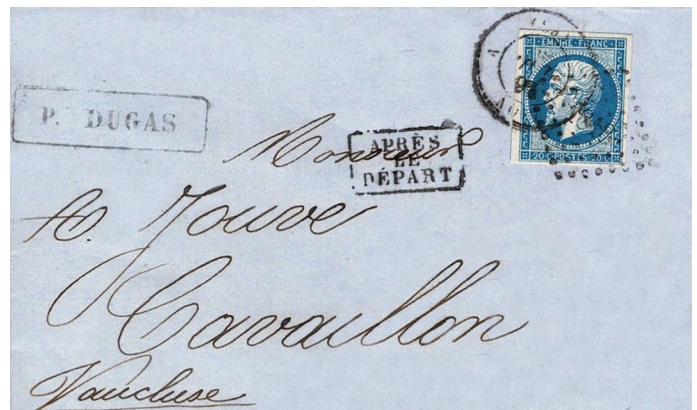 EMPIRE FRANC.
20 C. POSTES 20 C.
P. DUGAS
APRÈS
LE
DÉPART
Monsieur
A. Jouve
Cavaillon
Vaucluse